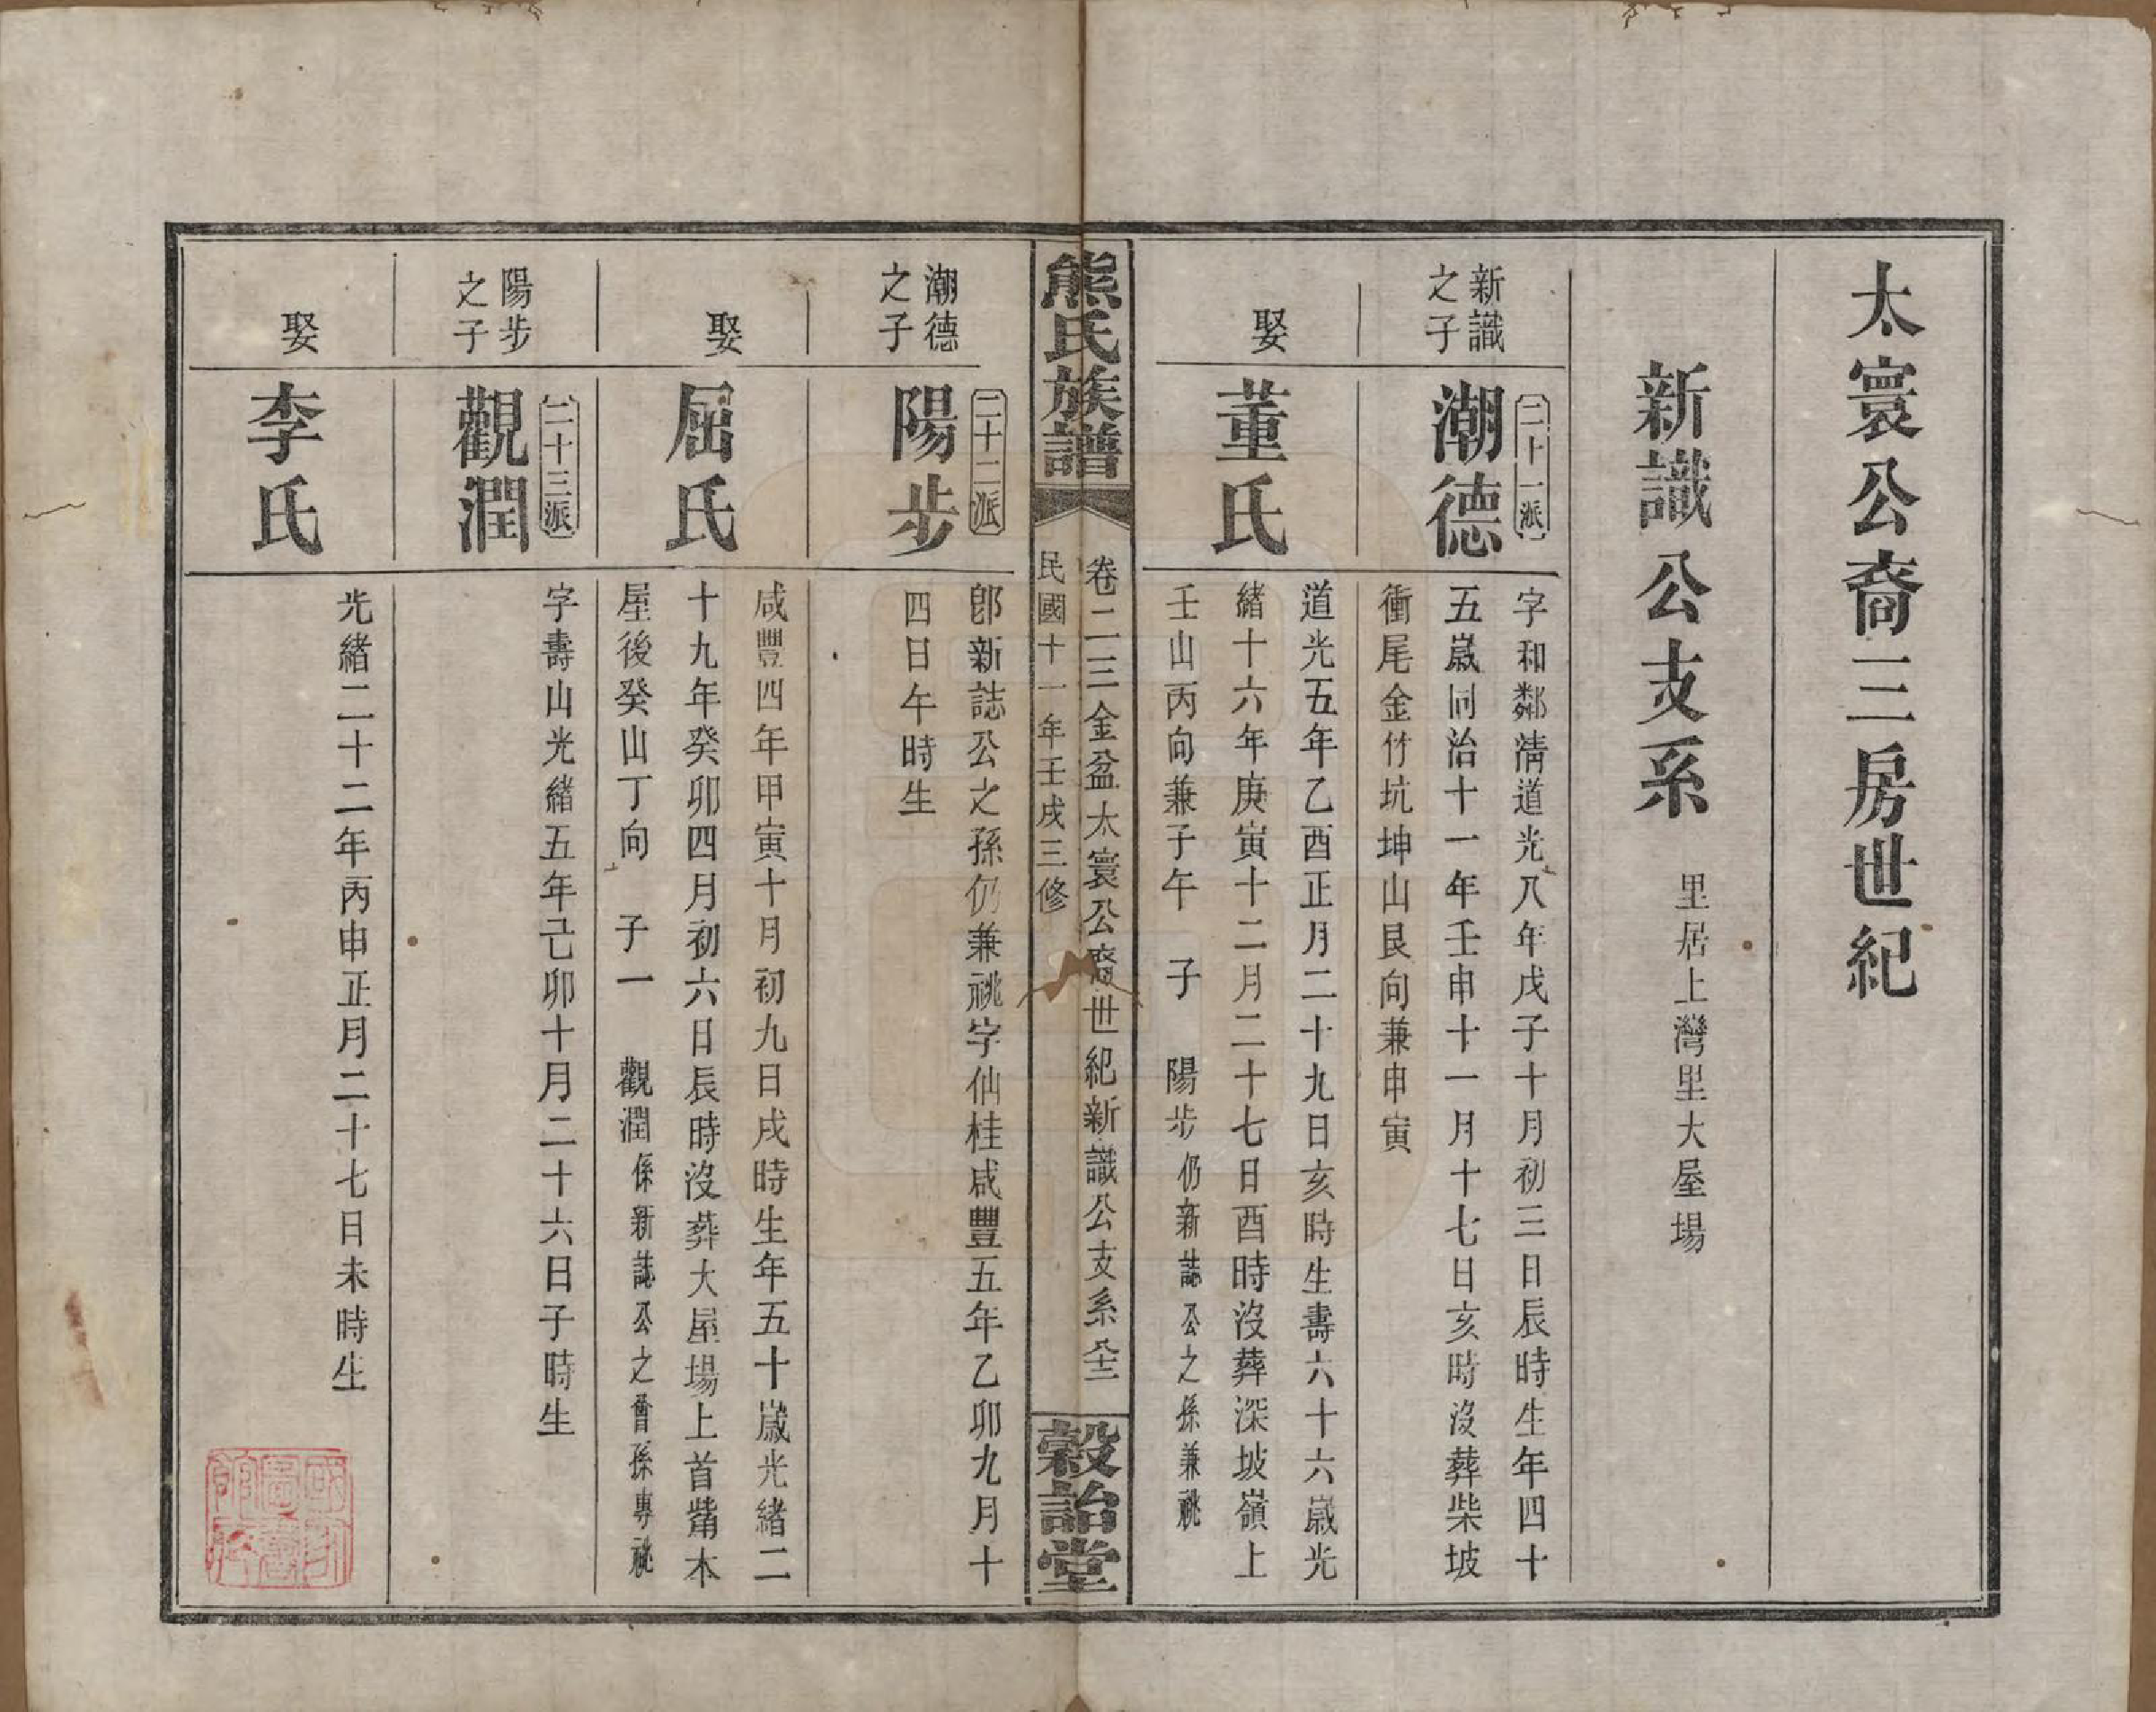 太寰公裔三房世紀
新識公支系
里居上灣里大屋場
新識
之子
二十一派
潮德
字和鄰淸道光八年戊子十月初三日辰時生年四十
五歲同治十一年壬申十一月十七日亥時沒葬柴坡
衝尾金竹坑坤山艮向兼申寅
娶
董氏
道光五年乙酉正月二十九日亥時生壽六十六歲光
緖十六年庚寅十二月二十七日酉時沒葬深坡嶺上
壬山丙向兼子午 子 陽步仍新誌公之孫兼祧
熊氏族譜
卷二三金盆太寰公裔世紀新識公支系
民國十一年壬戌三修
穀詒堂
潮德
之子
二十二派
陽步
卽新誌公之孫仍兼祧字仙桂咸豐五年乙卯九月十
四日午時生
娶
屈氏
咸豐四年甲寅十月初九日戌時生年五十歲光緖二
十九年癸卯四月初六日辰時沒葬大屋場上首嘴本
屋後癸山丁向 子一 觀潤係新誌公之曾孫專祧
陽步
之子
二十三派
觀潤
字壽山光緖五年己卯十月二十六日子時生
娶
李氏
光緖二十二年丙申正月二十七日未時生